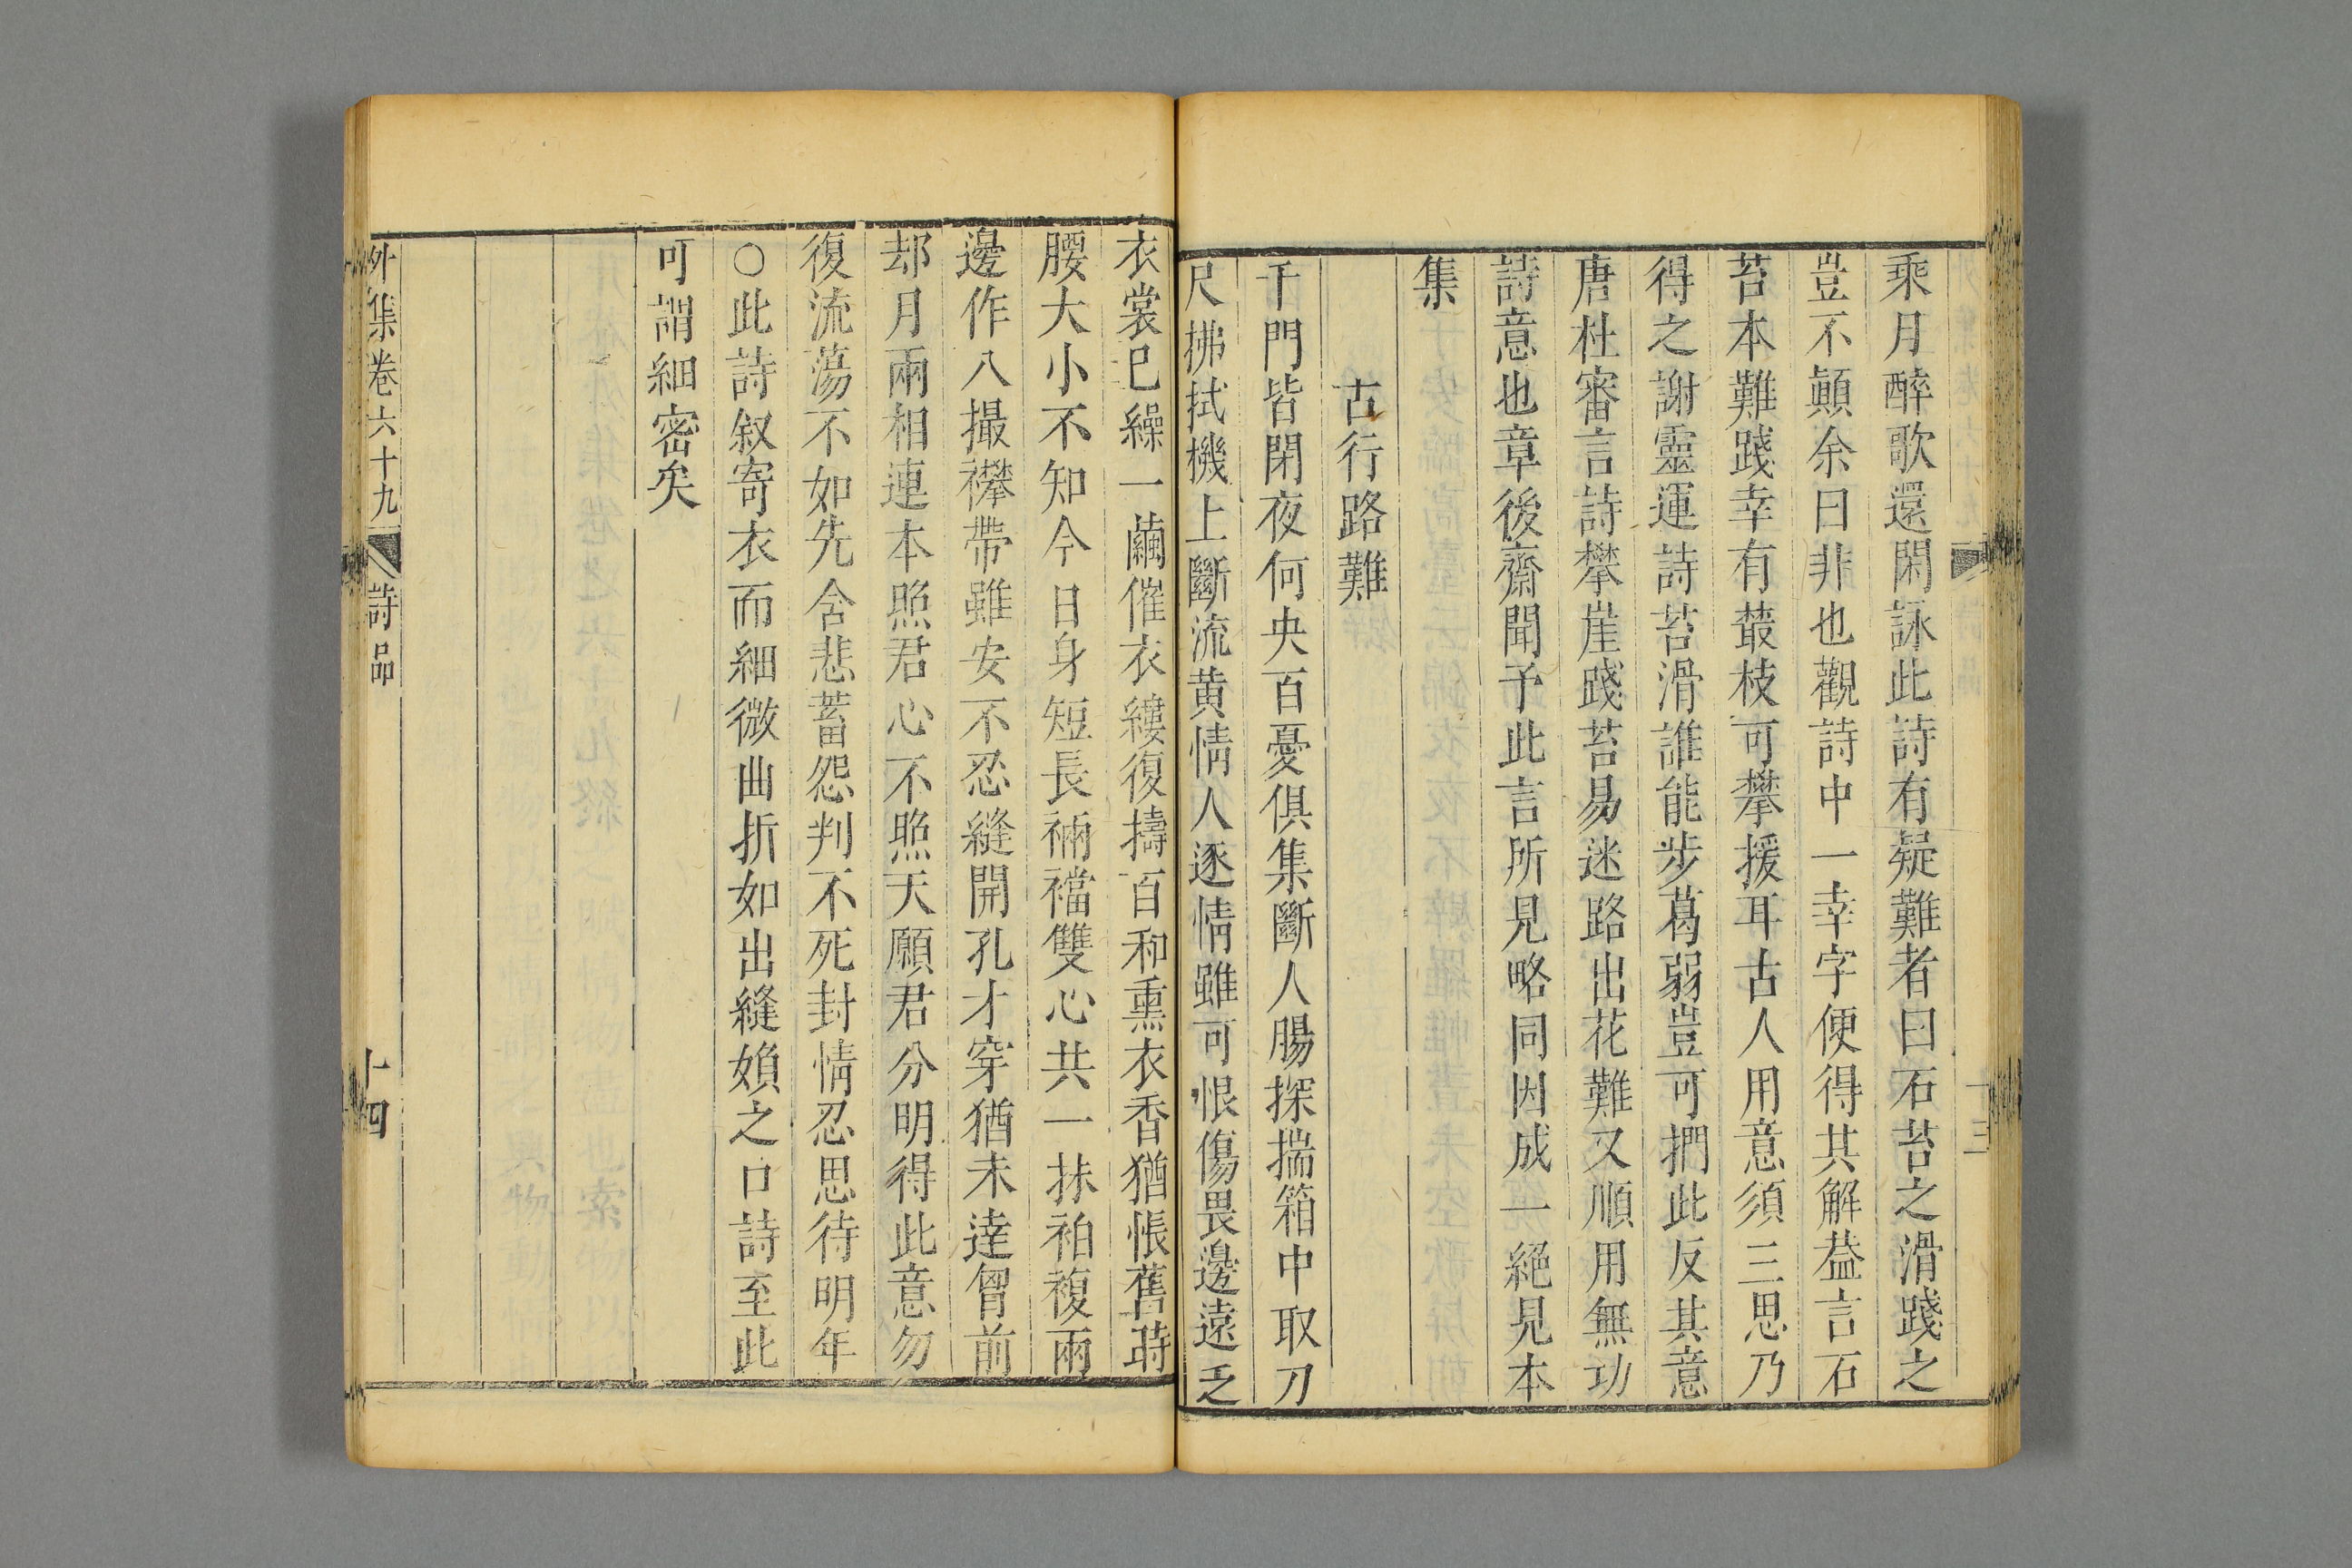 乘月醉歌還閑詠此詩有疑難者曰石苔之滑踐之
豈不顛余曰非也觀詩中一幸字便得其解葢言石
苔本難踐幸有䕺枝可攀援耳古人用意須三思乃
得之謝靈運詩苔滑誰能步葛弱豈可捫此反其意
唐杜審言詩攀崖踐苔易迷路出花難又順用無功
詩意也章後齋聞予此言所見略同因成一絕見本
集
古行路難
千門皆閉夜何央百憂俱集斷人腸探揣箱中取刀
尺拂拭機上斷流黄情人逐情雖可恨傷畏邊遠乏
衣裳巳繰一繭催衣縷復擣百和熏衣香猶悵舊時
腰大小不知今日身短長裲襠雙心共一抹袙複兩
邊作八撮襻帶雖安不忍縫開孔才穿猶未達胷前
却月兩相連本照君心不照天願君分明得此意勿
復流蕩不如先含悲蓄怨判不死封情忍思待明年
○此詩叙寄衣而細微曲折如出縫嬪之口詩至此
可謂細密矣
外集卷六十九 詩品 十四